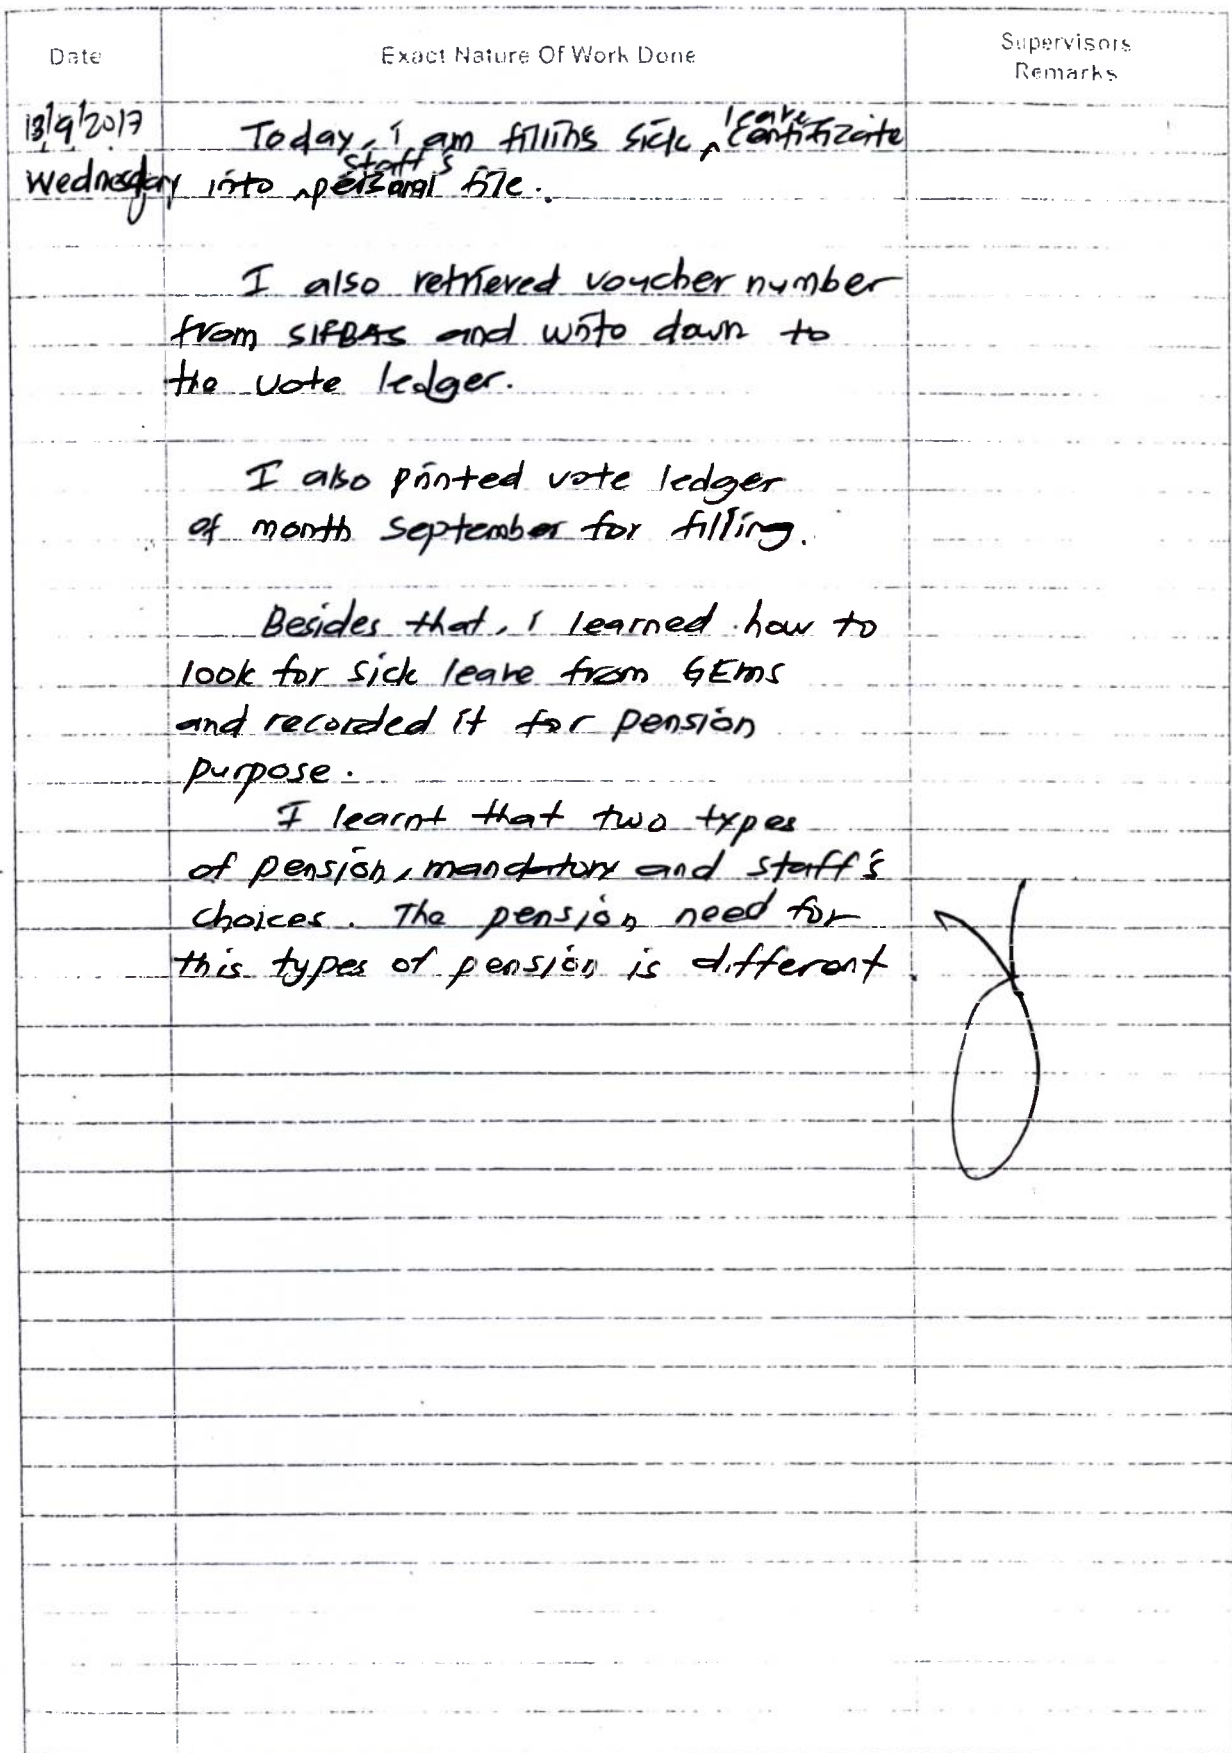 Date
Exact Nature Of Work Done
Supervisors
Remarks
13/9/2017
Wednesday
Today, i am filling sick ^leave certifizate
into ^staff's personal file.
I also retrieved voucher number
from SIFBAS and write down to
the vote ledger.
I also printed vote ledger
of month September for filling.
Besides that, i learned how to
look for sick leave from GEMS
and recorded it for pension
purpose.
I learnt that two types
of pension, mandatory and staff's
choices. The pension need for
this types of pension is different.